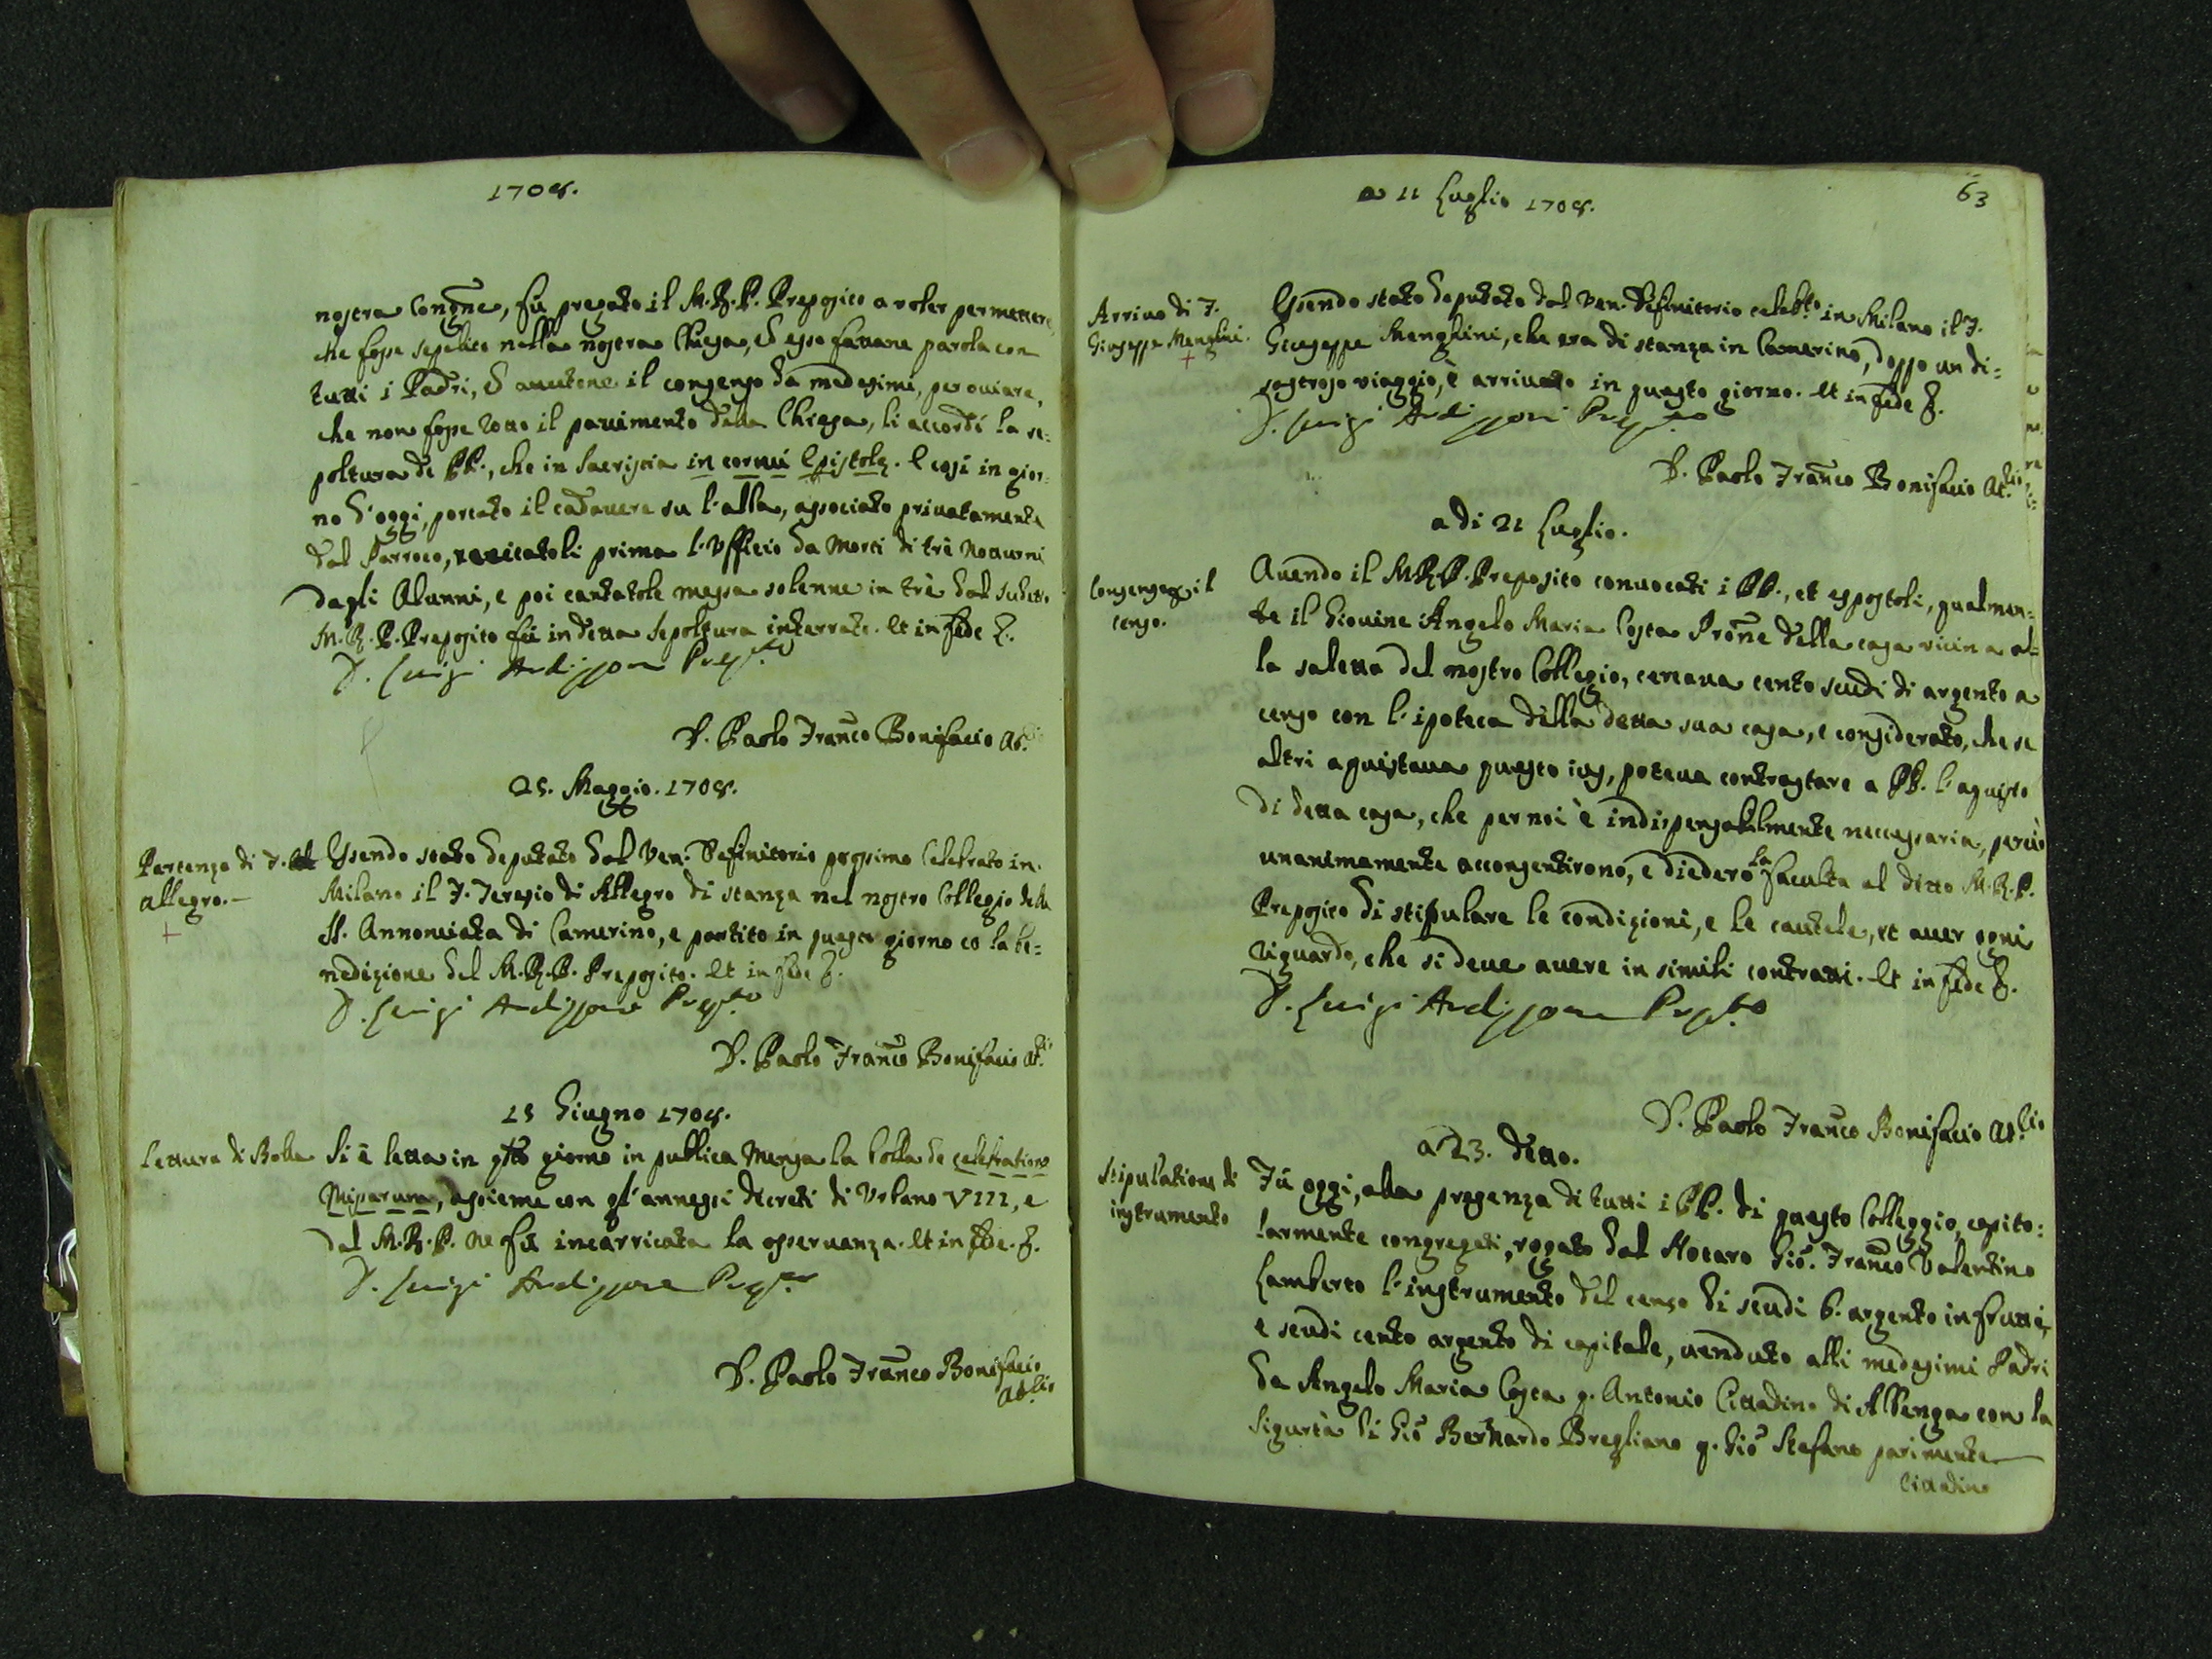 1708.
nostra Congne, fù pregato il M. R. P. Preposito a voler permettere
che fosse sepelito nella nostra Chiesa, ed esso fattane parola con
tutti i Padri, ed avutone il consenso da medesimi, per oviare,
che non fosse rotto il pavimento della Chiesa, li accordò la se:
poltura de PP., che in Sacristia in cornu Epistolę. E così in gior:
no d'oggi, portato il cadavere su l'alba, associato privatamente
dal Parroco, recitatoli prima l'Ufficio da Morti di trè Notturni
dagli Alunni, e poi cantatole messa solenne in trè dal sudetto
M. R. P. Preposito fù in detta sepoltura interrato. Et in fede &.
D. Luigi Ardizzone Prepto
D. Paolo Franco Bonifacio At.
25. Maggio. 1708.
Partenza di F.
Allegro.
Essendo stato deputato dal Ven. Definitorio prossimo celebrato in
Milano il F. Teresio di Allegro di stanza nel nostro Collegio della
SS. Annonciata di Camerino, e partito in questo giorno co la be:
nedizione del M. R. P. Preposito. Et in fede &.
D. Luigi Ardizzone Prepto
D. Paolo Franco Bonifacio At.rio
15 Giugno 1708.
Lettura di Bolla
Si è letta in qsto giorno in publica Mensa la bolla de celebratione
Missarum, assieme con gl'annessi decreti di Urbano VIII, e
dal M. R. P. ne fù incarricata la osservanza. Et in fede. &.
D. Luigi Ardizzone Prepto
D. Paolo Franco Bonifacio
At.rio
a 11 Luglio 1708.
63
Arrivo di F.
Giuseppe Menghini.
Essendo stato deputato dal Ven. Definitorio celebto in Milano il F.
Giuseppe Menghini, che era di stanza in Camerino, doppo un di:
sastroso viaggio, è arrivato in questo giorno. Et in fede &.
D. Luigi Ardizzoni Prepto
D. Paolo Franco Bonifacio At.rio
a di 21 Luglio.
Consenso p il
censo.
Avendo il M. R. P. Preposito convocati i PP., et espostoli, qualmen:
te il Giovine Angelo Maria Costa Prone della casa vicina al:
la saletta del nostro Collegio, cercava cento scudi di argento a
censo con l'ipoteca della detta sua casa, e considerato, che se
altri aquistava questo ius, poteva contrastare a PP. l'aquisto
di detta casa, che per noi è indispensabilmente necessaria, perciò
unanimamente acconsentirono, e diedero la facultà al ditto M. R. P.
Preposito di stipulare le condizioni, e le cautele, et aver ogni
riguardo, che si deve avere in simili contratti. Et in fede &.
D. Luigi Ardizzone Prepto
D. Paolo Franco Bonifacio At.rio
a 23. detto.
Stipulatione di
instrumento
Fù oggi, alla presenza di tutti i PP. di questo Colleggio capito:
larmente congregati, rogato dal Notaro Gio. Franco Valentino
Lamberto l'instrumento del censo di scudi 6. argento in frutti,
e scudi cento argento di capitale, venduto alli medesimi Padri
da Angelo Maria Costa q. Antonio Cittadino di Albenga con la
sigurtà di Gio Bernardo Bregliano q. Gio Stefano parimente
Cittadino